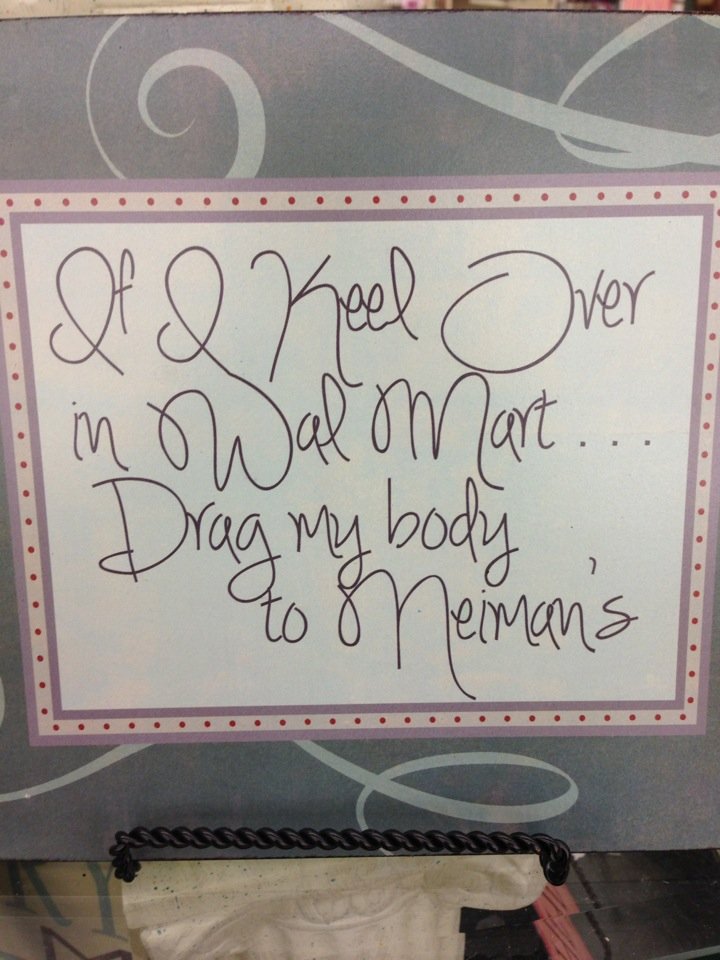 If I Keel Over
in Wal Mart...
Drag my body
to Neiman's